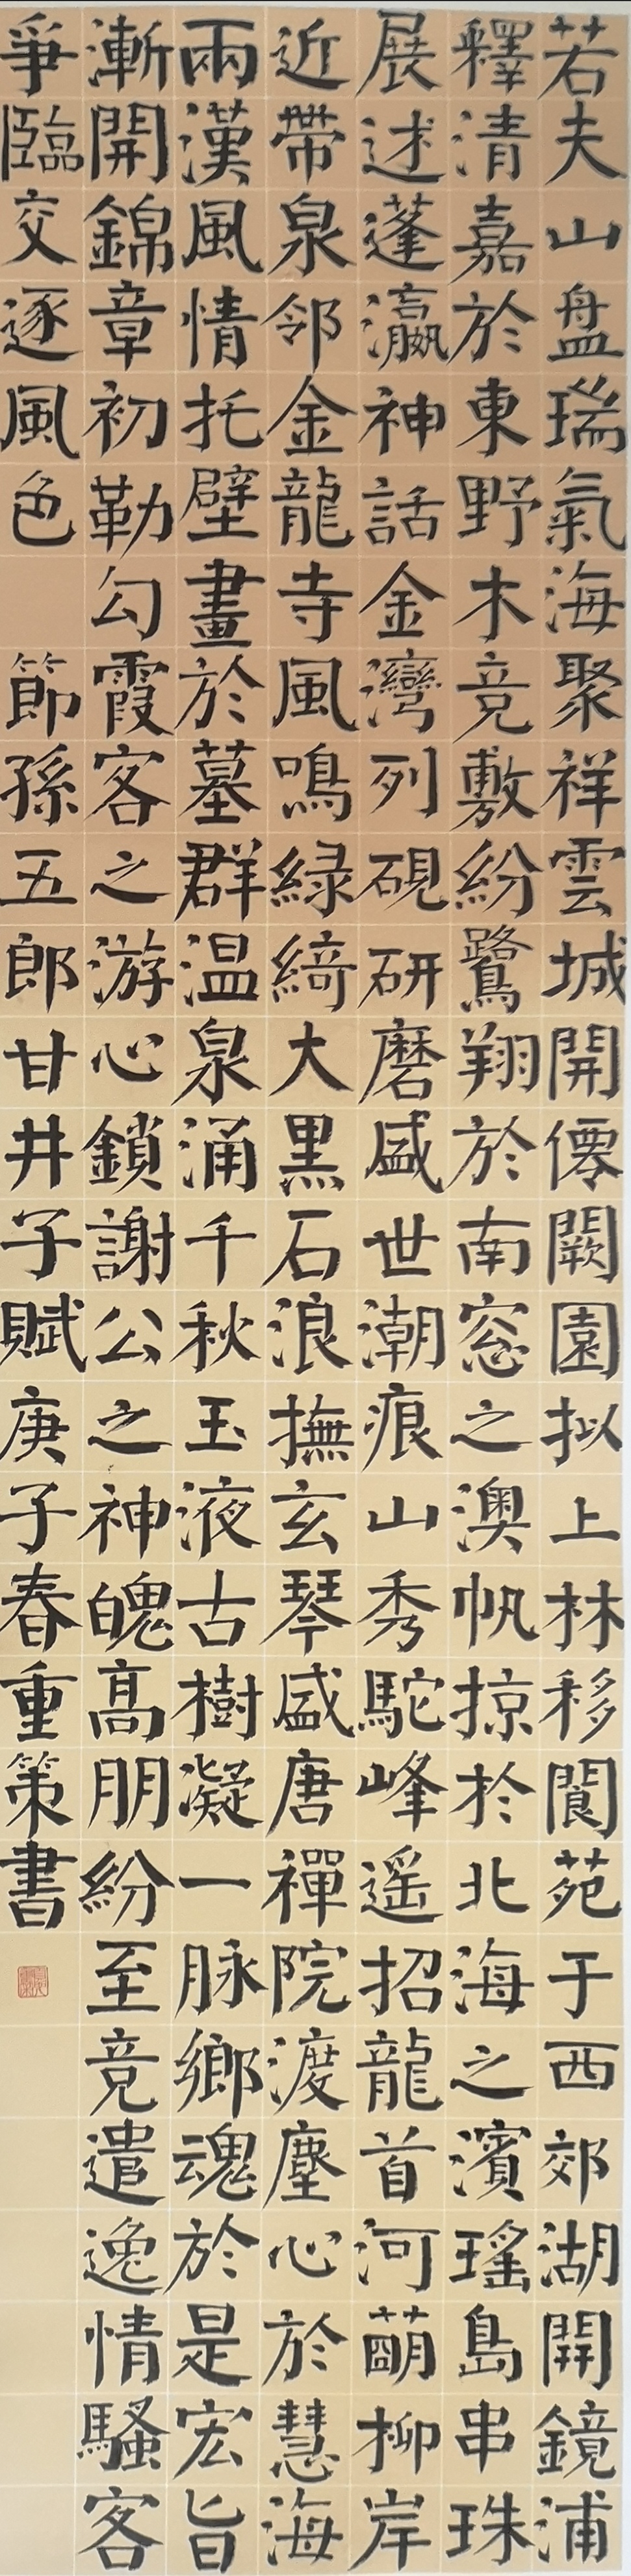 若夫山盘瑞氣海聚祥雲城開僊闕園拟上林移閬苑于西郊湖開鏡浦
釋清嘉於東野木竞敷紛鷺翔於南窓之澳帆掠於北海之濱瑤島串珠
展述蓬瀛神話金灣列硯研磨盛世潮痕山秀駝峰遥招龍首河萌柳岸
近帶泉邻金龍寺風鳴緑綺大黑石浪撫玄琴盛唐禪院渡塵心於慧海
兩漢風情托壁畫於墓群温泉涌千秋玉液古樹凝一脉鄉魂於是宏旨
漸開錦章初勒勾霞客之游心鎖謝公之神魄高朋紛至竞遣逸情騷客
爭臨交逐風色 節孫五郎甘井子賦庚子春重策書